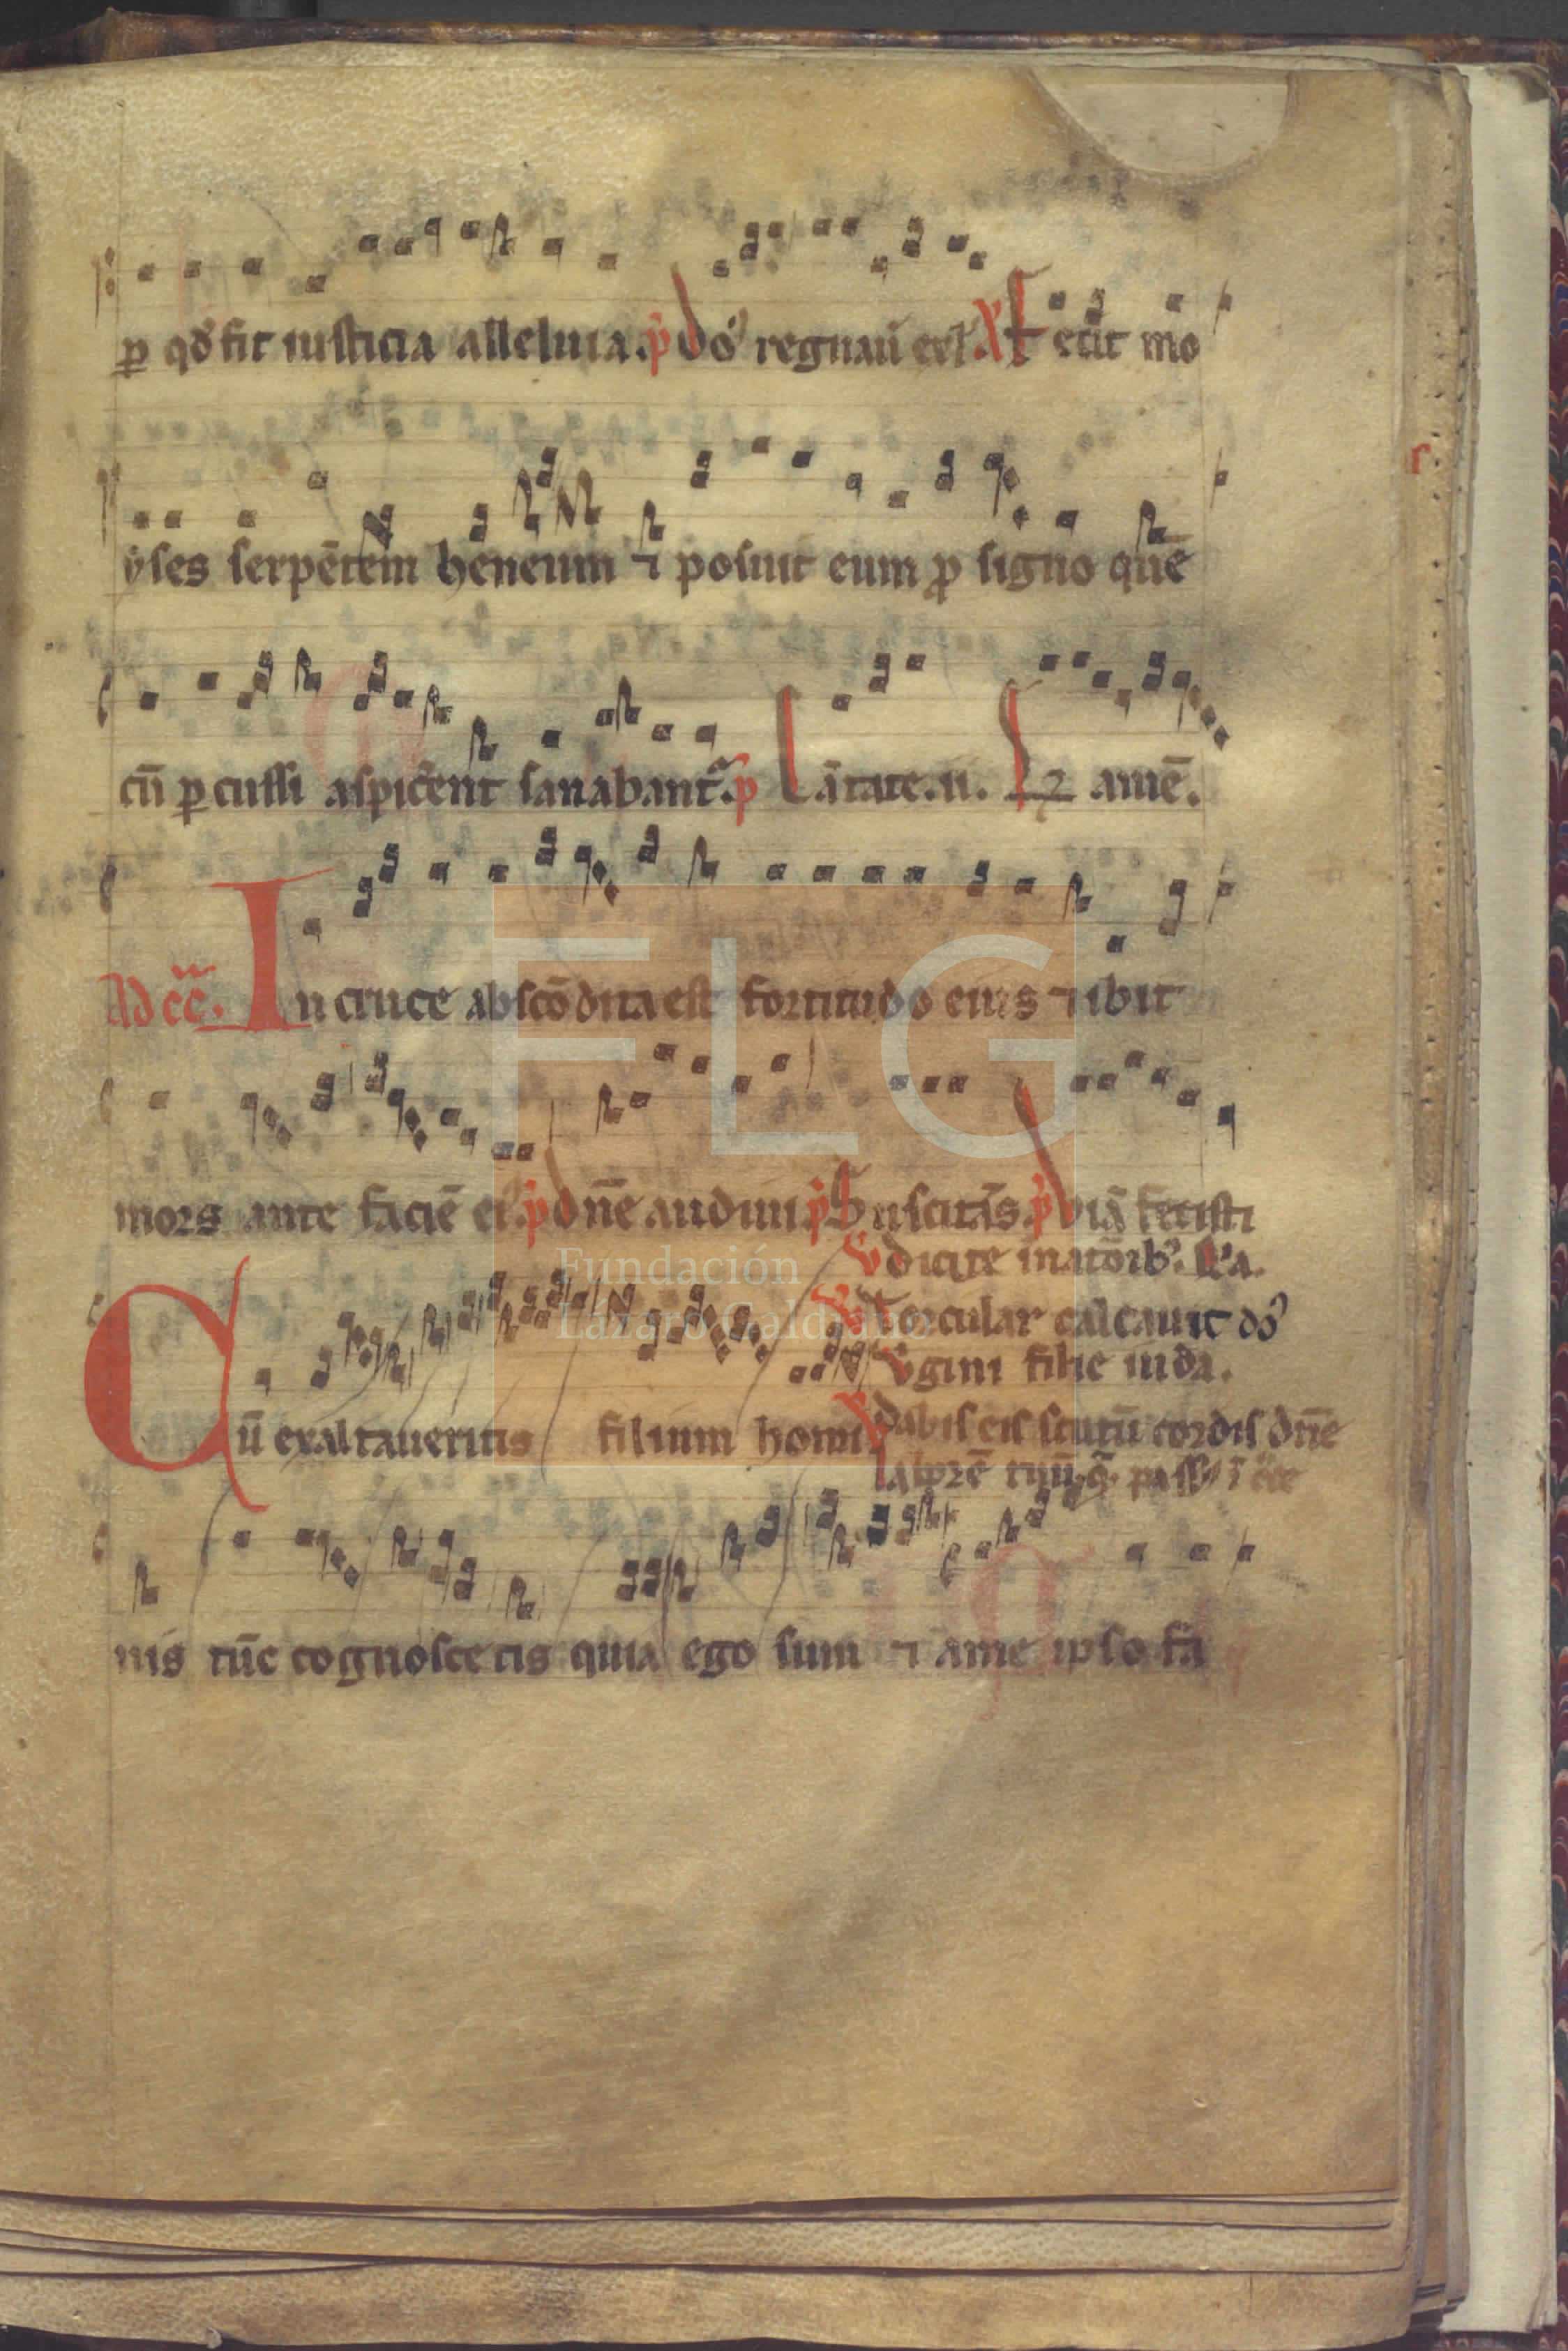 ꝑ qđ fit iusticia alleluia. p̃ Do᷒ regnauͥ exl͛. X̃ f ecit mo
yses serpētem heneum ⁊ posuit eum ꝓ signo quē
cū ꝑcussi aspicẽnt sanabant᷑. p̃ Lãtate. ii. amē.
Ad cc̃. In cruce abscōdita est fortitudo eius ⁊ ibit
mors ante faciē ei᷒. p̃ Dn̄e audiui. p̃ Suscitãs. p̃ Viã fecisti
V̄ dicite in natōib᷒. R᷒a.
Torcular calcauit do᷒
V̄gini filie iuda.
Cū exaltaueritis filium homi
Dabis eis scutū cordis dn̄e
laborē tuū.
nis tūc cognoscetis quia ego sum ⁊ ame ipso fa
FLG
Fundación
Lázaro Galdiano